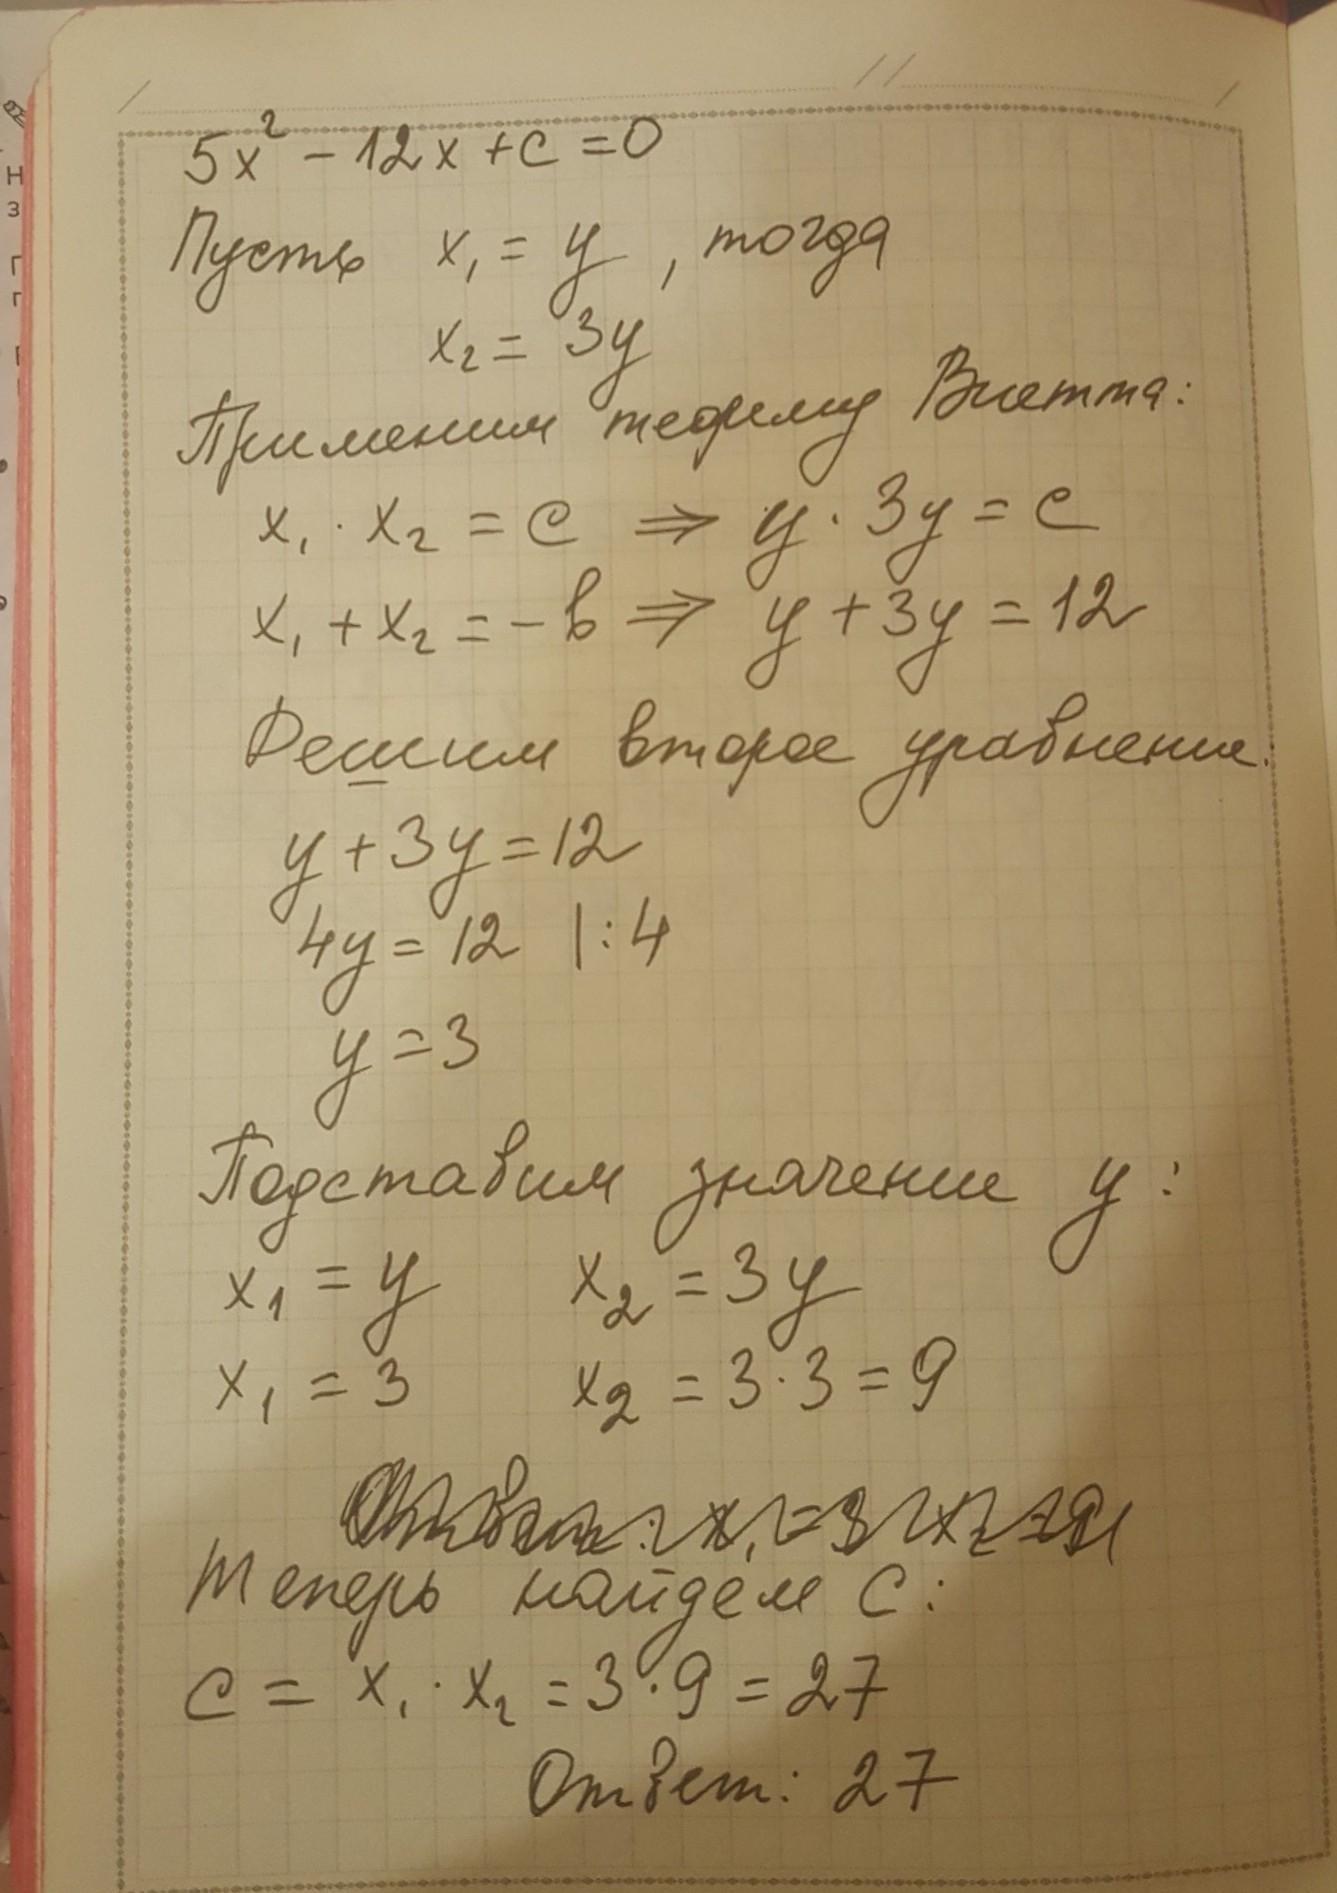 5x² - 12x + c = 0
Пусть x₁ = y, тогда
x₂ = 3y
Применим теорему Виетта:
x₁ · x₂ = c ⇒ y · 3y = c
x₁ + x₂ = -b ⇒ y + 3y = 12
Решим второе уравнение.
y + 3y = 12
4y = 12 | : 4
y = 3
Подставим значение y:
x₁ = y x₂ = 3y
x₁ = 3 x₂ = 3·3 = 9
Теперь найдем c:
c = x₁ · x₂ = 3·9 = 27
Ответ: 27